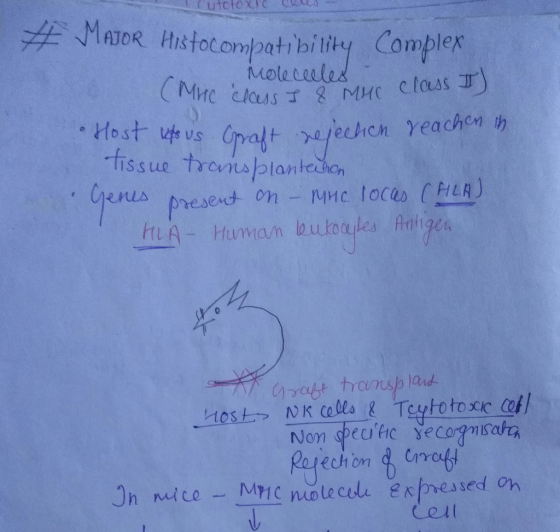 Cytotoxic cells -
# MAJOR Histocompatibility Complex
Molecules
(MHC class I & MHC class II)
• Host vs Graft rejection reaction in
tissue transplantation
• Genes present on - MHC locus (HLA)
HLA - Human leukocytes Antigen
Graft transplant
Host → NK cells & Tcytotoxic cell
Non specific recognisation
Rejection of Graft
In mice - MHC molecule expressed on
cell